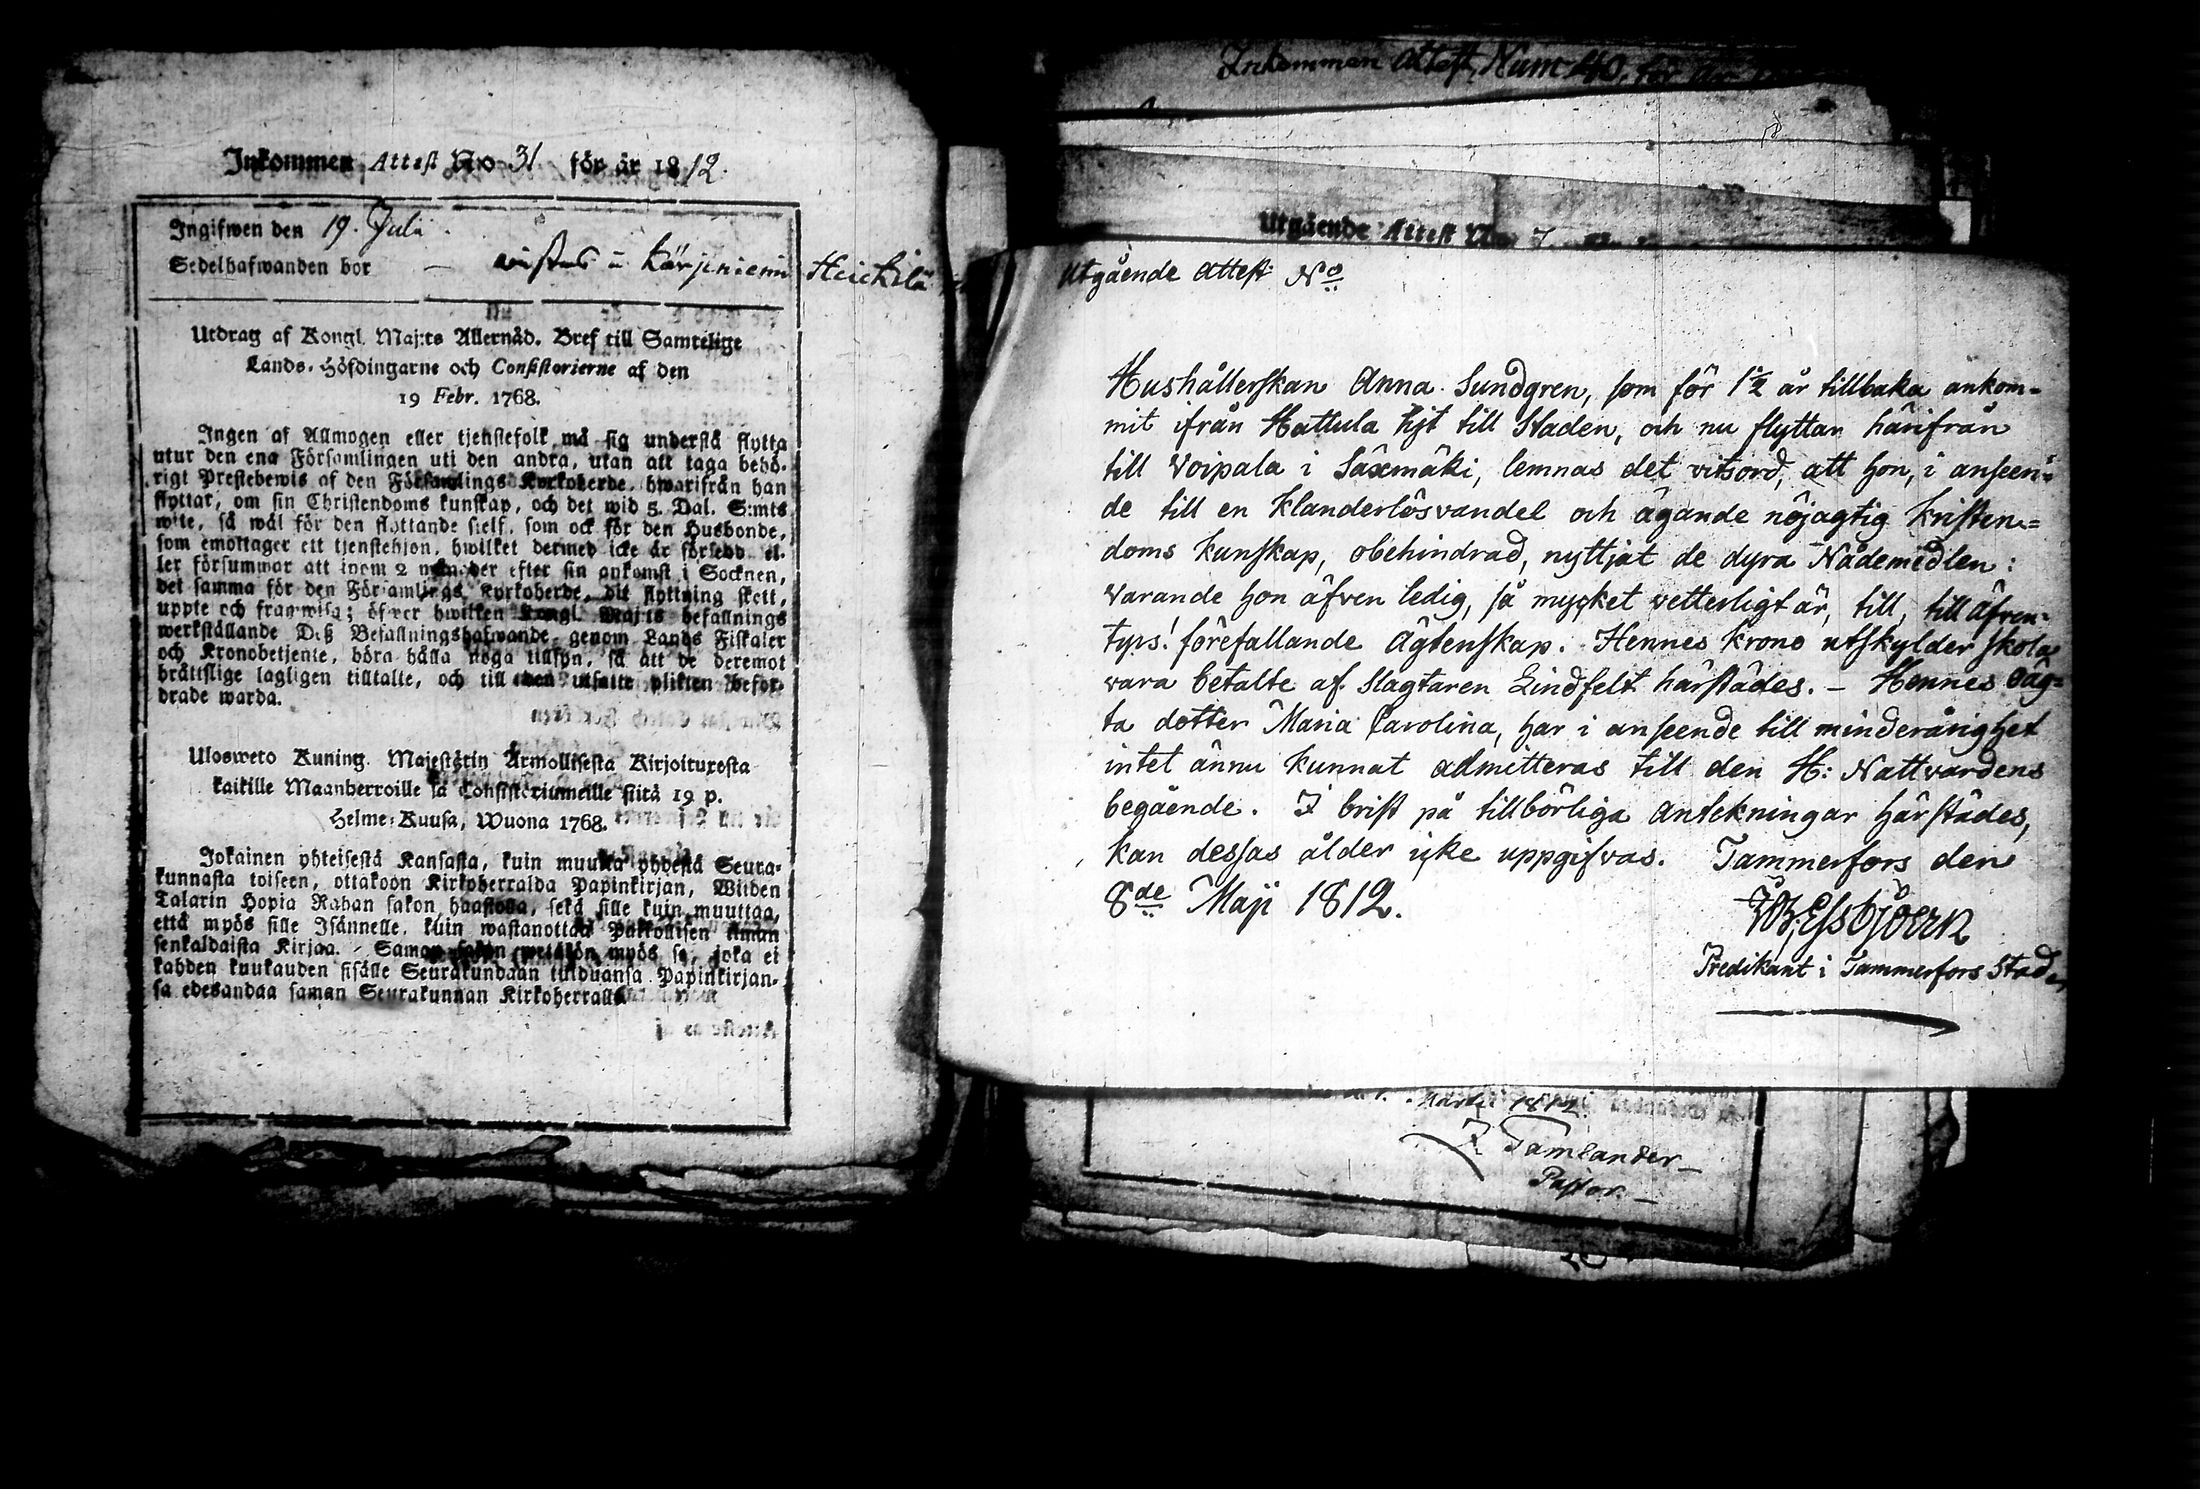 Inkommen Attest No 31 för år 1812.
Ingifwen den 19. Julii.
Sedelhafwanden bor – wistas i Kärjeniemi Heickilä
Utdrag af Kongl. Maj:ts Allernåd. Bref till Samtelige
Lands-Höfdingarne och Consistorierne af den
19 Febr. 1768.
Ingen af Allmogen eller tjenstefolk må sig understå flytta
utur den ena Församlingen uti den andra, utan att taga behö-
rigt Prestebewis af den Församlings Kyrkoherde, hwarifrån han
flyttar, om sin Christendoms kunskap, och det wid 5. Dal. S:mts
wite, så wäl för den flyttande sielf, som ock för den Husbonde,
som emottager ett tjenstehjon, hwilket dermed icke är försedd, el-
ler försummar att inom 2 månader efter sin ankomst i Socknen,
det samma för den Församlings Kyrkoherde, dit flyttning skett,
uppte och framwisa; öfwer hwilken Kongl. Maj:ts befallnings
werkställande Deß Befallningshafwande genom Lands Fiskaler
och Kronobetjente, böra hålla noga tillsyn, så att de deremot
bråttslige lagligen tilltalte, och till den utsatte plikten befor-
drade warda.
Ulosweto Kuning. Majestätin Armollisesta Kirjoituxesta
kaikille Maanherroille ja Consistoriumeille siitä 19 p.
Helme-Kuusa, Wuona 1768.
Jokainen yhteisestä Kansasta, kuin muutta yhdestä Seura-
kunnasta toiseen, ottakoon Kirkoherralda Papinkirjan, Wiiden
Talarin Hopia Rahan sakon haastolla, sekä sille kuin muuttaa,
että myös sille Isännelle, kuin wastanottaa Palkollisen ilman
senkaldaista Kirjaa. Saman sakon wetäkön myös se, joka ei
kahden kuukauden sisälle Seurakundaan tulduansa Papinkirjan-
sa edesandaa saman Seurakunnan Kirkoherralle.
Inkommen Attest, Num 40. för
Utgående Attest No 7
Utgående Attest No
Hushållerskan Anna Sundgren, som för 1½ år tillbaka ankom-
mit ifrån Hattula hjt till Staden, och nu flyttar härifrån
till Voipala i Säxmäki, lemnas det vitsord, att hon, i anseen-
de till en klanderlös vandel och ägande nöjagtig Kristen-
doms kunskap, obehindrad, nyttjat de dyra Nådemedlen:
Varande hon äfven ledig, så mycket vetterligt är, till, till äfven-
tyrs! förefallande Ägtenskap. Hennes krono utskylder skola
vara betalte af Slagtaren Lindfelt härstädes. – Hennes Oäg-
ta dotter Maria Carolina, har i anseende till minderårighet
intet ännu kunnat admitteras till den H: Nattvardens
begående. I brist på tillbörliga Antekningar härstädes,
kan dessas ålder icke uppgifvas. Tammerfors den
8de Maji 1812.
Essbjöern
Predikant i Tammerfors Stad
Martii 1812.
Tamlander
Pastor.